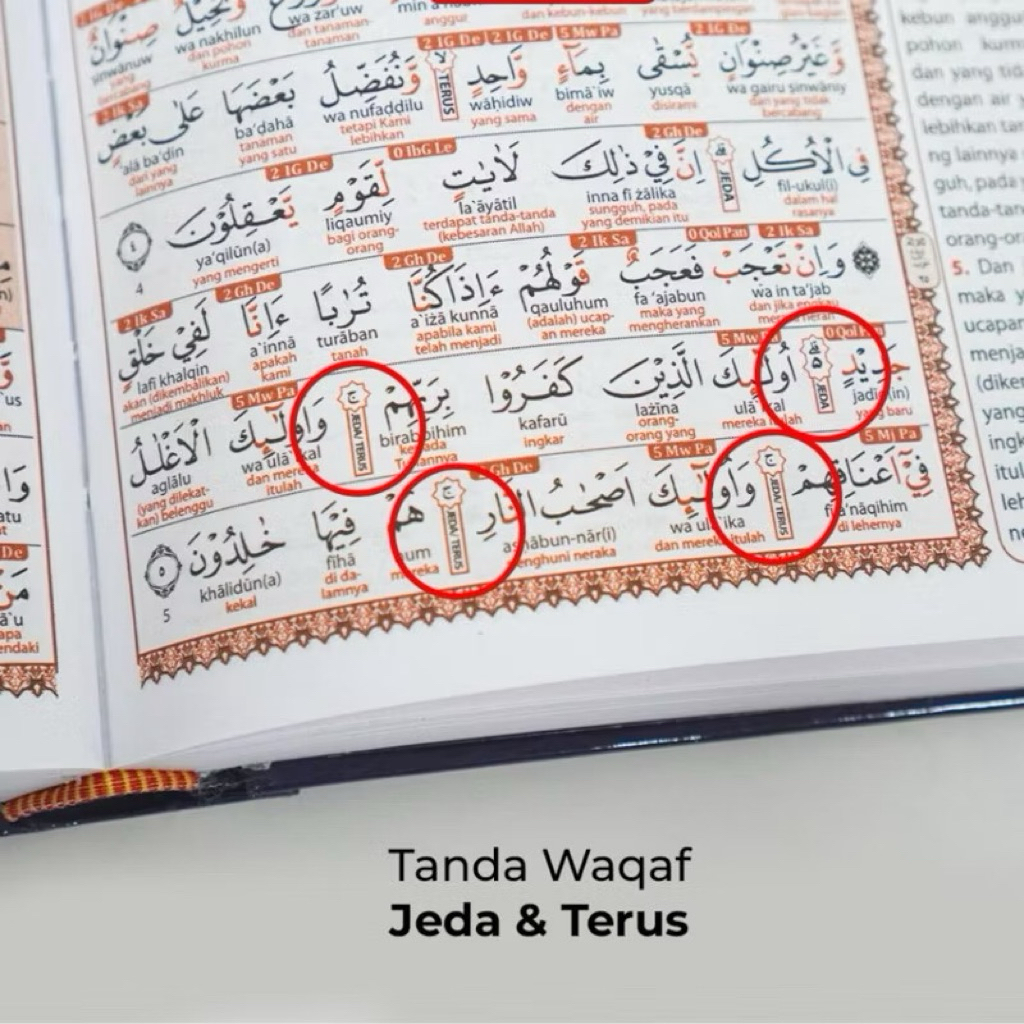 2 IG De 2 IG De 5 Mw Pa 2 IG De
وَّغَيْرُ صِنْوَانٍ يُّسْقٰى بِمَاۤءٍ وَّاحِدٍ لا TERUS وَّنُفَضِّلُ بَعْضَهَا عَلٰى بَعْضٍ
wa gairu ṣinwāniy yusqā bimā`iw wāḥidiw wa nufaḍḍilu ba'ḍahā 'alā ba'ḍin
dan yang tidak bercabang disirami dengan air yang sama tetapi Kami lebihkan tanaman yang satu dari yang lainnya
2 Gh De 0 IbG Le 2 IG De
فِى الْاُكُلِ ۗ JEDA اِنَّ فِيْ ذٰلِكَ لَاٰيٰتٍ لِّقَوْمٍ يَّعْقِلُوْنَ ٤
fil-ukul(i) inna fī żālika la`āyātil liqaumiy ya'qilūn(a) 4
dalam hal rasanya sungguh, pada yang demikian itu terdapat tanda-tanda (kebesaran Allah) bagi orang-orang yang mengerti
2 Ik Sa 0 Qol Pan 2 Ik Sa 2 Gh De 2 Gh De 2 Ik Sa
وَاِنْ تَعْجَبْ فَعَجَبٌ قَوْلُهُمْ ءَاِذَا كُنَّا تُرٰبًا ءَاِنَّا لَفِيْ خَلْقٍ
wa in ta'jab fa 'ajabun qauluhum a`iżā kunnā turāban a`innā lafī khalqin
dan jika engkau maka yang mengherankan (adalah) ucapan mereka apabila kami telah menjadi tanah apakah kami akan (dikembalikan) menjadi makhluk
0 Qol Pan 5 Mw Pa 5 Mw Pa
جَدِيْدٍ ۗ JEDA اُولٰۤىِٕكَ الَّذِيْنَ كَفَرُوْا بِرَبِّهِمْ ۚ JEDA/ TERUS وَاُولٰۤىِٕكَ الْاَغْلٰلُ
jadīd(in) ulā`ikal lażīna kafarū birabbihim wa ulā`ikal aglālu
yang baru mereka itulah orang-orang yang ingkar kepada Tuhannya dan mereka itulah (yang dilekatkan) belenggu
5 Mj Pa 5 Mw Pa Gh De
فِيْٓ اَعْنَاقِهِمْ ۚ JEDA/ TERUS وَاُولٰۤىِٕكَ اَصْحٰبُ النَّارِ ۚ JEDA/ TERUS هُمْ فِيْهَا خٰلِدُوْنَ ٥
fī a'nāqihim wa ulā`ika aṣḥābun-nār(i) hum fīhā khālidūn(a) 5
di lehernya dan mereka itulah penghuni neraka mereka di dalamnya kekal
Tanda Waqaf
Jeda & Terus